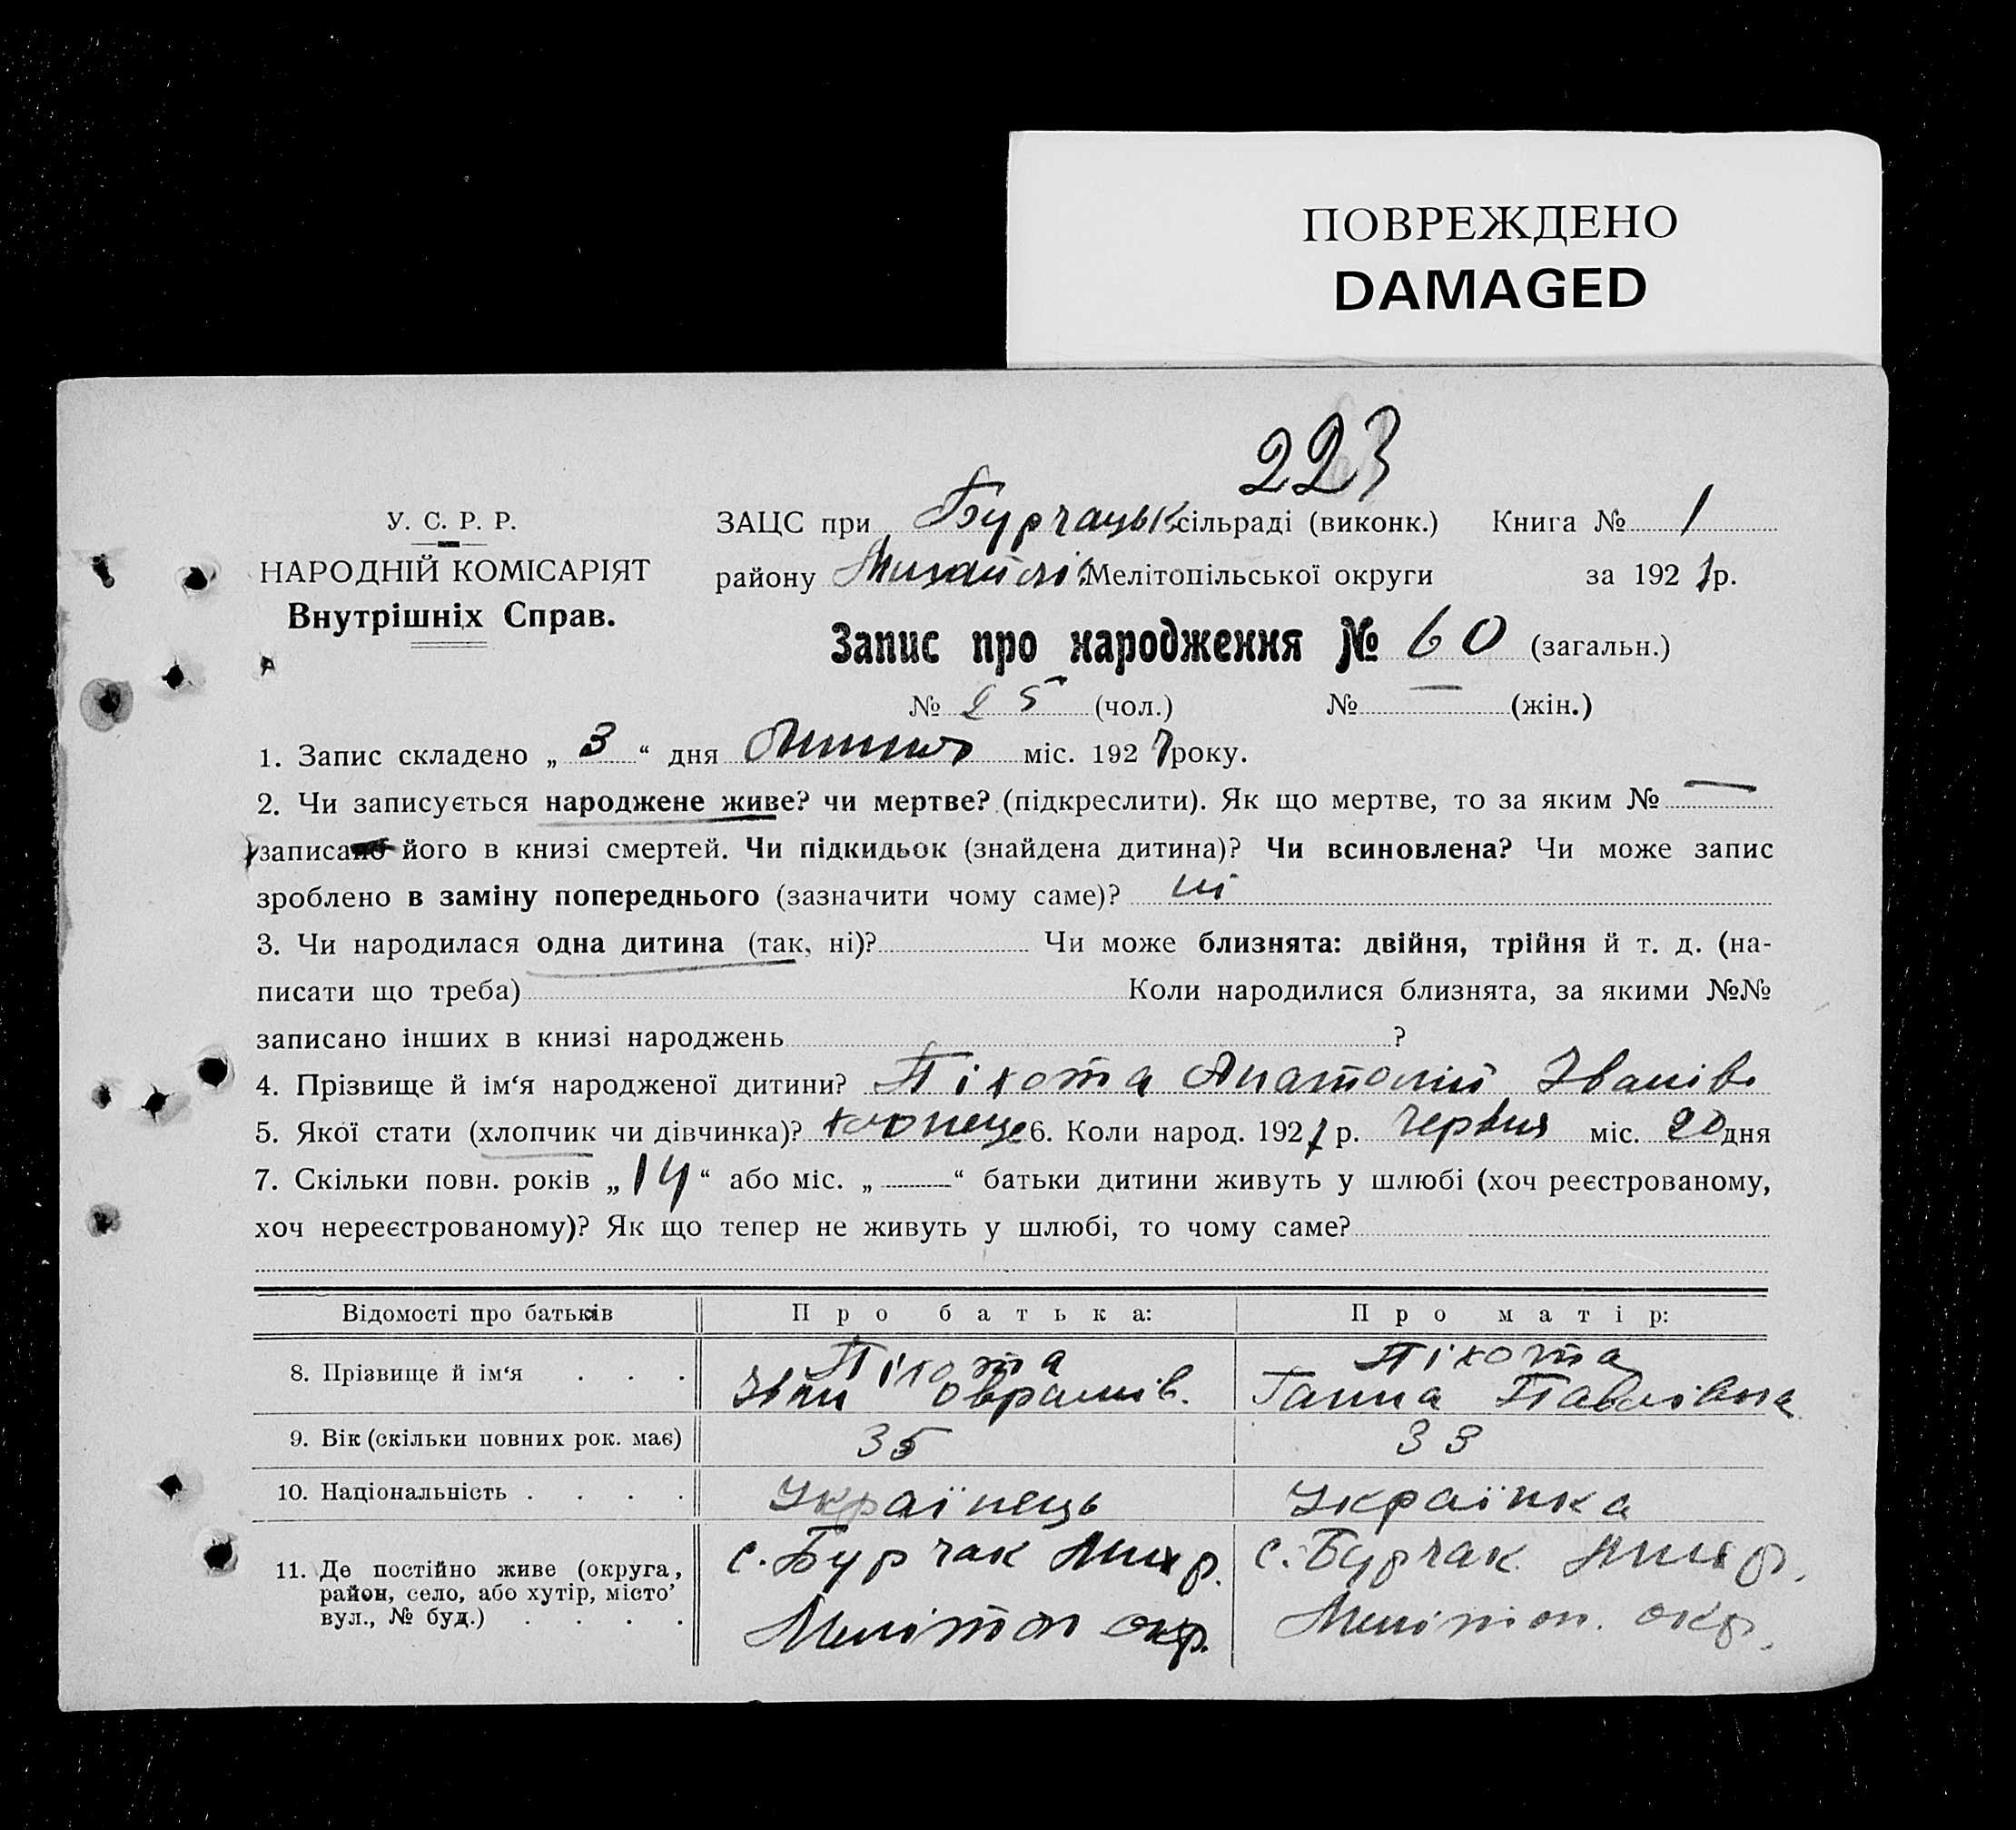 ПОВРЕЖДЕНО
DAMAGED
223
У. С. Р. Р.
НАРОДНІЙ КОМІСАРІЯТ
Внутрішніх Справ.
ЗАЦС при Бурчацьк сільраді (виконк.) Книга № 1
району Михайлів Мелітопільської округи за 1927 р.
Запис про народження № 60 (загальн.)
№ 25 (чол.) № — (жін.)
1. Запис складено „ 3 “ дня Липня міс. 1927 року.
2. Чи записується народжене живе? чи мертве? (підкреслити). Як що мертве, то за яким № —
записано його в книзі смертей. Чи підкидьок (знайдена дитина)? Чи всиновлена? Чи може запис
зроблено в заміну попереднього (зазначити чому саме)? ні
3. Чи народилася одна дитина (так, ні)? Чи може близнята: двійня, трійня й т. д. (на-
писати що треба) Коли народилися близнята, за якими №№
записано інших в книзі народжень ?
4. Прізвище й ім‘я народженої дитини? Піхота Анатолій Іванів
5. Якої стати (хлопчик чи дівчинка)? хлопець 6. Коли народ. 1927 р. червня міс. 20 дня
7. Скільки повн. років „ 14 “ або міс. „ — “ батьки дитини живуть у шлюбі (хоч реєстрованому,
хоч нереєстрованому)? Як що тепер не живуть у шлюбі, то чому саме?
Відомості про батьків Про батька: Про матір:
8. Прізвище й ім‘я . . . Піхота Іван Оврамів. Піхота Ганна Павлівна
9. Вік (скільки повних рок. має) 35 33
10. Національність . . . . Українець Українка
11. Де постійно живе (округа, с. Бурчак Мих р. с. Бурчак Мих р.
район, село, або хутір, місто’
вул., № буд.) . . . . Мелітоп окр. Мелітоп. окр.